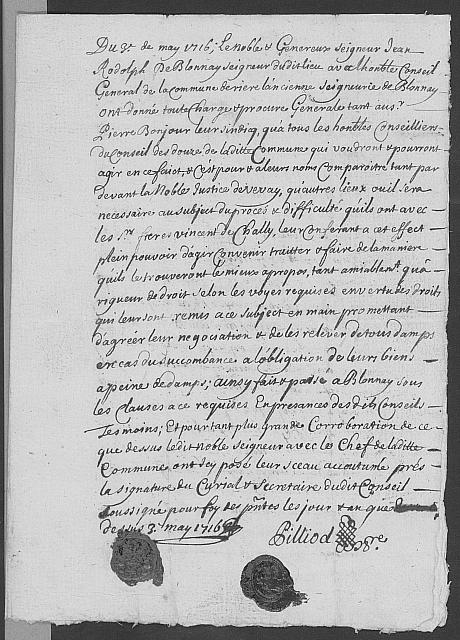 Du 3e. de may 1716; Le Noble & Genereux Seigneur Jean
Rodolph De Blonnay seigneur du dit lieu avec l'honble Conseil
General de la commune derriere l'ancienne seigneurie de Blonay
ont donné toute Charge & procure Generale tant au sr.
Pierre Bonjour leur sindiq, qu'a tous les honbles Conseilliers
du Conseil des douze de la ditte Commune qui voudront & pourront
agir en ce faict, & c'est pour & a leurs noms Comparoistre tant par
devant la Noble Justice de Vevay, qu'autres lieux ou il sera
necessaire au subject du procés & difficulté qu'ils ont avec
les srs. freres vincent de Chally, leur Conferant a cet effect
plein pouvoir d'agir Convenir traitter & faire de la maniere
qu'ils le trouveront le mieux a propos, tant amiablemt. qu'a
rigueur de droit selon les voyes requises en vertu des droits
qui leur sont remis a ce subject en main promettant
d'agréer leur negociation & de les relever de tous damps
en cas du succombance a l'obligation de leurs biens
a peine de damps; ainsy fait & passé a Blonnay sous
les clauses a ce requises En presances des dits Conseils
Tesmoins; Et pour tant plus Grande Corroboration de ce
que dessus le dit noble Seigneur avec le Chef de la ditte
Commune, ont icy posé leur sceau accoutumé prés
la signature du Curial & Secretaire du dit Conseil
soussigné pour foy des pntes les jour & an que
dessus 3e. may 1716
Pilliod